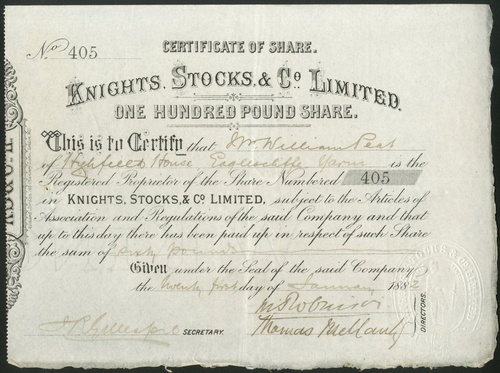 No 405
CERTIFICATE OF SHARE.
KNIGHTS, STOCKS, & Co LIMITED.
ONE HUNDRED POUND SHARE.
This is to Certify that Mr William Peat
of Highfield House Eaglescliffe Yarm is the
Registered Proprietor of the Share Numbered 405
in KNIGHTS, STOCKS, & Co LIMITED, subject to the Articles of
Association and Regulations of the said Company and that
up to this day there has been paid up in respect of such Share
the sum of sixty pounds
Given under the Seal of the said Company
the twenty first day of January 1882
SECRETARY.
Thomas
DIRECTORS.